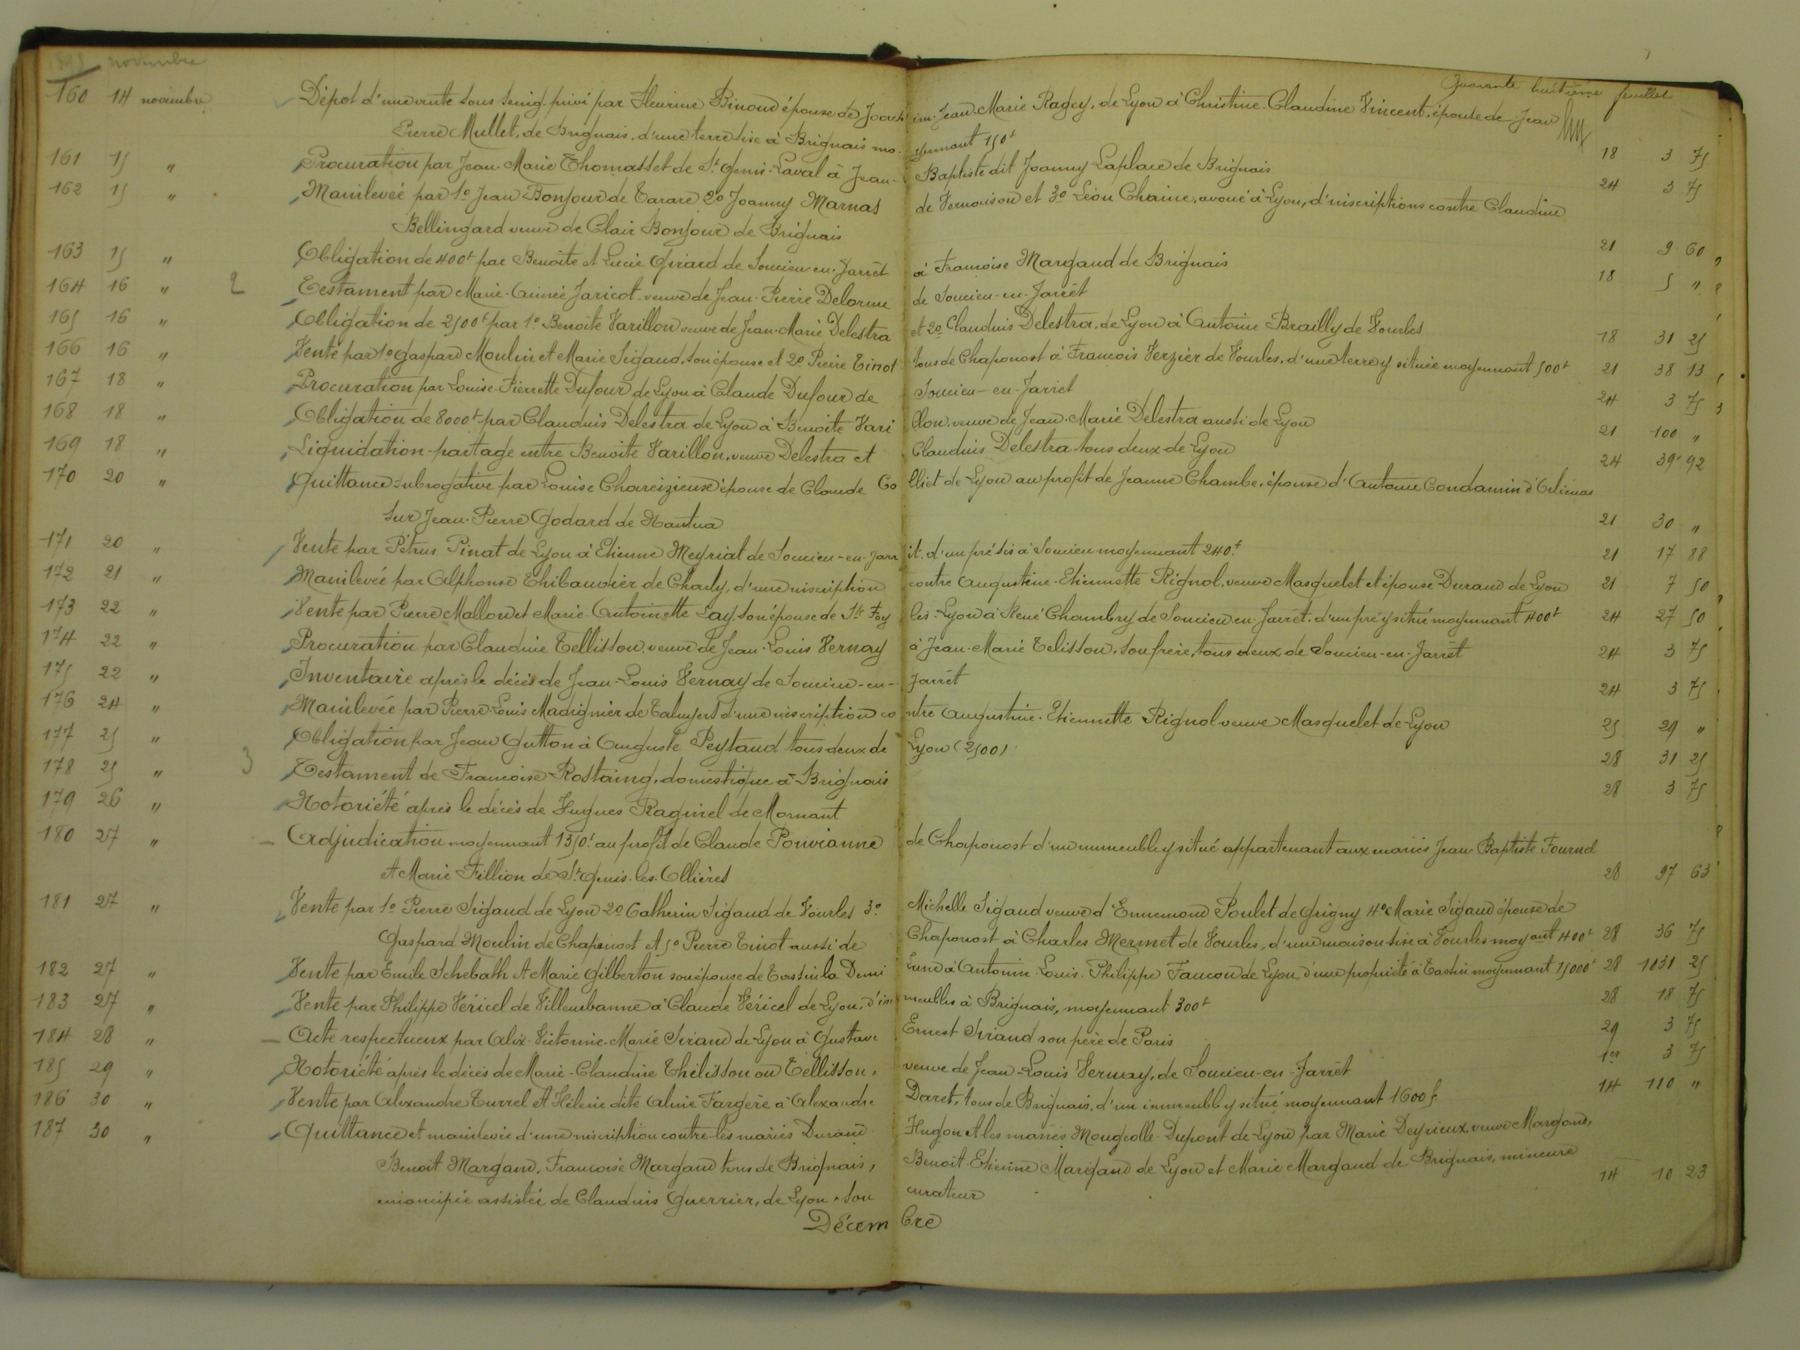 novembre
Quarante huitième feuillet
160 14 novembre Dépôt d'une vente sous seing privé par Fleurine Binoud épouse de Joach im-Jean-Marie Ragey, de Lyon à Christine Claudine Vincent, épouse de Jean
Pierre Mullet, de Brignais, d'une terre sise à Brignais mo yennant 150f 18 3 75
161 15 " Procuration par Jean-Marie Thomasset de St Genis-Laval à Jean- Baptiste dit Joanny Laplace de Brignais 24 3 75
162 15 " Mainlevée par 1o Jean Bonjour de Tarare 2o Joanny Marnas de Vernaison et 3o Léon Chaine, avoué à Lyon, d'inscriptions contre Claudine
Bellingard veuve de Clair Bonjour de Brignais 21 9 60
163 15 " Obligation de 400f par Benoite et Lucie Girard de Soucieu-en-Jarrêt à Françoise Margaud de Brignais 18 5 "
164 16 " 2 Testament par Marie-Aimée Jaricot veuve de Jean-Pierre Delorme de Soucieu-en-Jarrêt
165 16 " Obligation de 2500f par 1o Benoite Varillon veuve de Jean-Marie Delestra et 2o Claudius Delestra, de Lyon à Antoine Brailly de Vourles 18 31 25
166 16 " Vente par 1o Gaspard Moulin et Marie Sigaud, son épouse et 2o Pierre Tinot tous de Chaponost à François Verzier de Vourles, d'une terre y située moyennant 500f 21 38 13
167 18 " Procuration par Louise-Pierrette Dufour de Lyon à Claude Dufour de Soucieu-en-Jarret 24 3 75
168 18 " Obligation de 8000f par Claudius Delestra de Lyon à Benoite Vari llon, veuve de Jean-Marie Delestra aussi de Lyon 21 100 "
169 18 " Liquidation-partage entre Benoite Varillon, veuve Delestra et Claudius Delestra tous deux de Lyon 24 39 92
170 20 " Quittance subrogative par Louise Chareizieux épouse de Claude Co lliet de Lyon au profit de Jeanne Chambe, épouse d'Antoine Condamin d'Orliénas
sur Jean-Pierre Godard de Nantua 21 30 "
171 20 " Vente par Pétrus Pinat de Lyon à Etienne Meyriat de Soucieu-en-Jarr êt, d'un pré sis à Soucieu moyennant 240f 21 17 88
172 21 " Mainlevée par Alphonse Thibaudier de Charly, d'une inscription contre Augustine-Etiennette Rignol, veuve Masquelet et épouse Durand de Lyon 21 7 50
173 22 " Vente par Pierre Mallon et Marie Antoinette Lay, son épouse de Ste Foy les-Lyon à René Chambry de Soucieu en-Jarrêt, d'un pré y situé moyennant 400f 24 27 50
174 22 " Procuration par Claudine Tellisson, veuve de Jean-Louis Vernay à Jean-Marie Telisson, son frère, tous deux de Soucieu-en-Jarrêt 24 3 75
175 22 " Inventaire après le décès de Jean-Louis Vernay de Soucieu-en- Jarrêt 24 3 75
176 24 " Mainlevée par Pierre-Louis Madignier de Taluyers d'une inscription co ntre Augustine-Etiennette Rignol veuve Masquelet de Lyon 25 29 "
177 25 " Obligation par Jean Gutton à Auguste Peytaud tous deux de Lyon (2500) 28 31 25
178 25 " 3 Testament de Françoise Rostaing, domestique à Brignais
179 26 " Notoriété après le décès de Hugues Raginel de Mornant 28 3 75
180 27 " Adjudication moyennant 1350f au profit de Claude Ponvianne de Chaponost d'un immeuble y situé appartenant aux mariés Jean-Baptiste Fournel
et Marie Fillion de St Genis-les-Ollières 28 97 63
181 27 " Vente par 1o Pierre Sigaud de Lyon 2o Catherin Sigaud de Vourles 3o Michelle Sigaud veuve d'Ennemond Poulet de Grigny 4o Marie Sigaud épouse de
Gaspard Moulin de Chaponost et 5o Pierre Tinot aussi de Chaponost à Charles Mermet de Vourles, d'une maison sise à Vourles moyant 400f 28 36 75
182 27 " Vente par Emile Schebath et Marie Gilberton son épouse de Tassin la Demi Lune à Antonin-Louis-Philippe Faucon de Lyon, d'une propriété à Tassin moyennant 15000f 28 1031 25
183 27 " Vente par Philippe Véricel de Villeurbanne à Claude Véricel de Lyon, d'im meubles à Brignais, moyennant 300f 28 18 75
184 28 " Acte respectueux par Alix-Victorine-Marie Siraud de Lyon à Gustave Ernest Siraud son père de Paris 29 3 75
185 29 " Notoriété après le décès de Marie-Claudine Thélisson ou Tellisson, veuve de Jean-Louis Vernay, de Soucieu-en-Jarrêt 1er 3 75
186 30 " Vente par Alexandre Turrel et Hélène dite Aline Fargère à Alexandre Daret, tous de Brignais, d'un immeuble y situé moyennant 1600f 14 110 "
187 30 " Quittance et mainlevée d'une inscription contre les mariés Durand Hugon et les mariés Mougeolle-Dupont de Lyon par Marie Deyrieux veuve Margaud,
Benoit Margaud, Françoise Margaud tous de Brignais, Benoit Etienne Margaud de Lyon et Marie Margaud de Brignais, mineure
émancipée assistée de Claudius Guerrier, de Lyon, son curateur 14 10 23
Décem bre